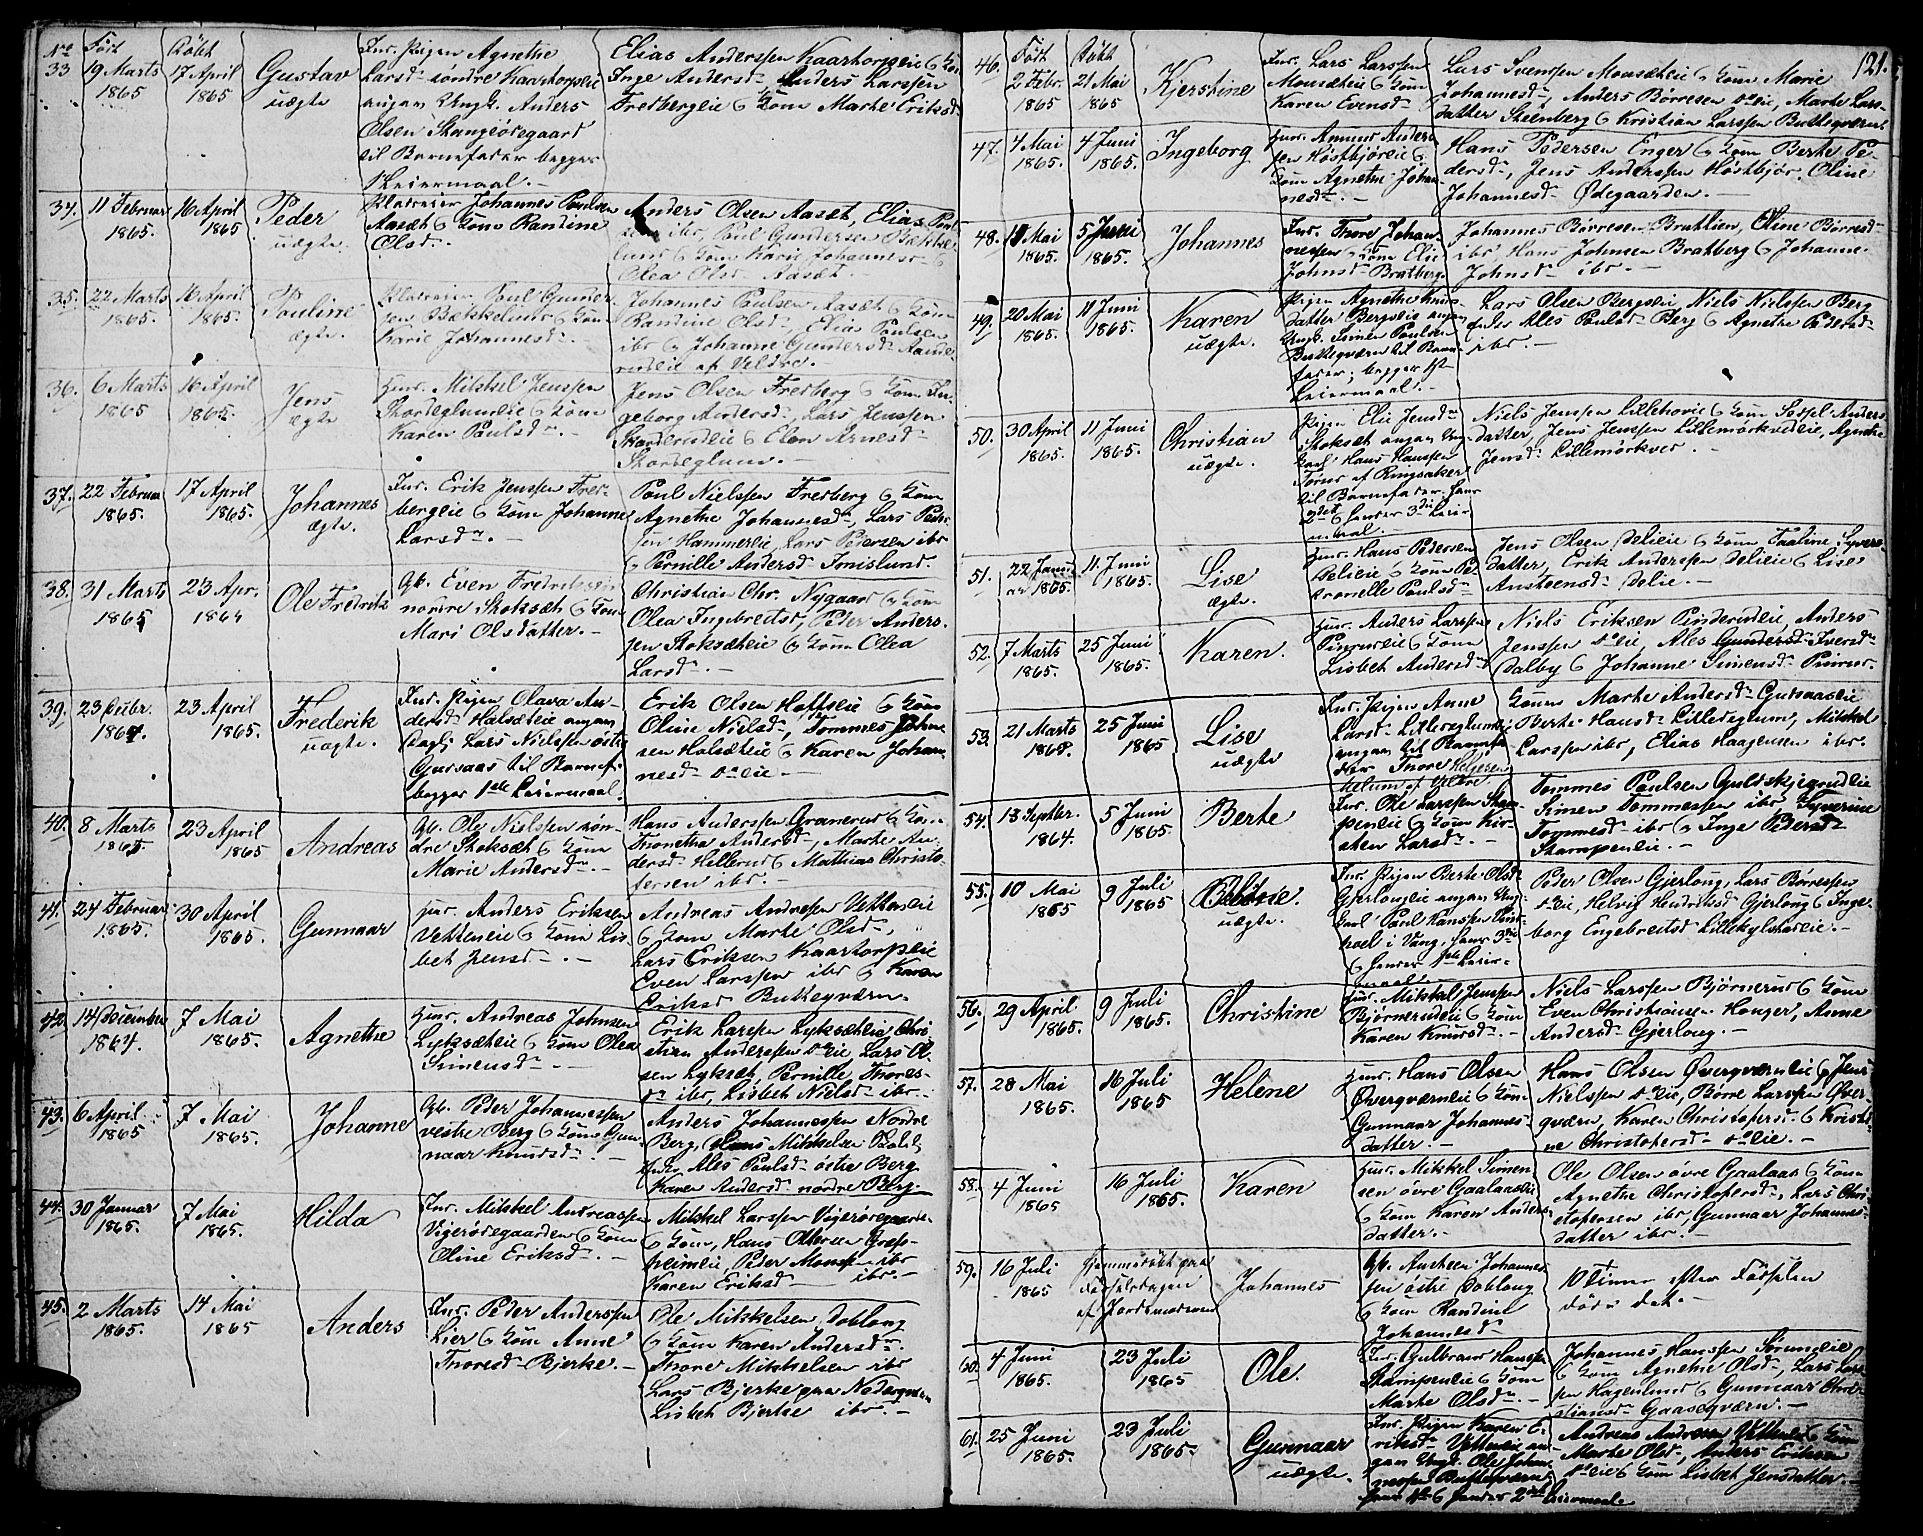 No Født Døbt
33 19 Marts 1865 17 April 1865 Gustav uægte
Inds. Pigen Agnethe
Larsd. søndre Kaartorpeie
angav Ungk. Anders
Olsen Stangsødegaard
til Barnefader begges
1ste Leiermaal. -
Elias Anderssen Kaartorpeie & Kone
Inge Andersd., Anders Larssen
Fredbergeie & Kone Marthe Eriksd.
34. 11 Februar 1865. 16 April 1865 Peder uægte.
Johannes Paulsen
Aasæt & Kone Randine
Olsd.
Anders Olsen Aasæt, Elias Paul-
sen ibd, Poul Gundersen Bække-
lund & Kone Karie Johannesd. &
Olea Olsd. Aasæt. -
35. 22 Marts 1865. 16 April 1865. Pauline ægte.
Poul Gunder-
sen Bækkelund & Kone
Karie Johannesd.
Johannes Paulsen Aasæt & Kone
Randine Olsd., Elias Paulsen
ibd & Johanne Gundersd.
af Veldre.
36. 6 Marts 1865 16 April 1865. Jens ægte
Huusm. Mikkel Jenssen
Skordeglumeie & Kone
Karen Paulsd. -
Jens Olsen Fredberg & Kone In-
geborg Andersd., Lars Jenssen
& Elen Arnesd.
Skordeglum. -
37. 22 Februar 1865. 17 April 1865. Johannes ægte.
Inds. Erik Jenssen Fred-
bergeie & Kone Johanne
Larsd. -
Poul Nielssen Fredberg & Kone
Agnethe Johannesd., Lars Peder-
sen Hammereie, Lars Pedersen ibd
& Pernille Andersd. Smislund.
38. 31 Marts 1865 23 Apr. 1865 Ole Fredrik
Gb. Even Fredriksen
nordre Stoksæt & Kone
Mari Olsdatter. -
Christian Chr. Nygaard & Kone
Olea Ingebretsd., Peder Anders-
sen Stoksæteie & Kone Olea
Larsd. -
39. 23 Octbr. 1864. 23 April 1865. Frederik uægte.
Inds. Pigen Olava An-
dersd. Halsæteie angav
Lars Nielssen østre
Gjersaas til Barnef.
begges 1ste Leiermaal.
Erik Olsen Hoffseie & Kone
Oline Nielsd., Tommes Johne-
sen Halsæteie & Karen Johan-
nesd. do eie. -
40. 8 Marts 1865 23 April 1865 Andreas
Gb. Ole Nielssen søn-
dre Stoksæt & Kone
Marie Andersd. -
Hans Anderssen Granerud & Kone
Andersd., Marthe An-
dersd. Hellerud & Mathias Christo-
fersen ibd.
41. 24 Februar 1865. 30 April 1865. Gunnaar
Huusm. Anders Eriksen
Vetteneie & Kone Lis-
bet Jensd. -
Andreas Andressen Vetteneie
& Kone Marte Olsd.,
Lars Eriksen Kaartorpeie
Even Larssen ibd & Karen
Eriksd. Buttegværn.
42. 14 December 1864. 7 Mai 1865. Agnethe
Huusm. Andreas Johnsen
Lyksæteie & Kone Olea
Simensd. -
Erik Larssen Lyksæteie Chri-
stian Anderssen do eie, Lars Ol-
sen Lyksæt, Pernille Thores-
d. ibd, Lisbet Nielsd. ibd. -
43. 6 April 1865 7 Mai 1865. Johanne
Gb. Peder Johannessen
vestre Berg & Kone Gun-
naar Knudsd. -
Anders Johannessen Nordre
Berg, Hans Mikkelsen
Ales Paulsd. østre Berg
Karen Andersd. nordre Berg
44. 30 Januar 1865. 7 Mai 1865. Hilda
Inds. Mikkel Andreassen
Vigerødegaarden & Kone
Oline Eriksd. -
Mikkel Larssen Vigerødegaards-
& Kone, Hans Olsen Grøp-
heimeie, Peder Monsen ibd
Karen Eriksd. ibd. -
45. 2 Marts 1865. 14 Mai 1865 Anders
Inds. Peder Anderssen
Lier & Kone Anne
Thoresd. Bjerke. -
Ole Mikkelsen Doblong
& Kone Karen Andersd.
Thore Mikkelsen ibd
Lars Bjerke paa Nedergværn
Lisbeth Bjerke ibd. -
121.
46. Født 2 Febr. 1865 Døbt 21 Mai 1865 Kjerstine
Inds. Lars Larssen
Monsæteie & Kone
Karen Evensd.
Lars Svenssen Monsæteie & Kone Marie
Johannesd., Anders Børresen do eie, Marte Lars-
datter Steenberg & Kristian Larssen Buttegværn.
47. 4 Mai 1865. 4 Juni 1865. Ingeborg
Huusm. Amund Anders-
sen Høstbjøreie &
Kone Agnethe Johan-
nesd. -
Hans Pedersen Enger & Kone Berte Pe-
dersd., Jens Anderssen Høstbjør, Oline
Johannesd. Ødegaarden. -
48. 11 Mai 1865. 5 Juni 1865. Johannes
Inds. Thore Johan-
nessen & Kone Elie
Johnsd. Bratberg.
Johannes Børresen Bratlien, Oline Børresd.
ibd, Hans Johnsen Bratberg & Johanne
Johnsd. ibd. -
49. 20 Mai 1865. 11 Juni 1865. Karen uægte.
Pigen Agnethe Knuds-
datter Bergseie angav
Ungk. Simen Poulsen
Buttegværn til Barne-
fader; begges 1ste
Leiermaal. -
Lars Olsen Bergseie, Niels Nielssen Berg
Ales Paulsd. Berg & Agnethe Pedersd.
ibd. -
50. 30 April 1865. 11 Juni 1865. Christian uægte.
Pigen Elie Jensd.
Stoksæt angav Ung-
karl Hans Hanssen
af Ringsaker
til Barnefader, hans
2det & hendes 3die Leier-
maal.
Niels Jenssen Lillehovie & Kone Anders-
datter, Jens Jenssen Lillemørkvedeie, Agnethe
Jensd. Lillemørkved. -
51. 22 Januar 1865. 11 Juni 1865. Lise ægte.
Huusm. Hans Pedersen
Delieie & Kone Pe-
tronelle Paulsd.
Jens Olsen Delieie & Kone Pauline Syvers-
datter, Erik Anderssen Delieie & Lise
Austensd. Delie. -
52. 7 Marts 1865. 25 Juni 1865. Karen.
Huusm. Anders Larssen
& Kone
Lisbet Andersd.
Niels Eriksen Pinderudeie, Anders
Jenssen do eie, Ales Gundersd. Iversd.
Dalby & Johanne Simensd.
53. 21 Marts 1865. 25 Juni 1865 Lise uægte
Inds. Pigen Anne
Larsd. Lilleseglum
angav til Barnefa-
der Thore Helgesen
af Veldre
Konen Marthe Andersd. Gjersaaseie
Berte Hansd. Lilleseglum, Mikkel
Larssen ibd, Elias Haagensen ibd.
54. 13 Septbr. 1864. 5 Juni 1865. Berte
Inds. Ole Larssen Skam-
peneie & Kone Kir-
sten Larsd. -
Tommes Paulsen Guldskjegrudeie
Simen Tommessen ibd Syverine
Tommesd. ibd & Inge Pedersd.
Skampeneie. -
55. 10 Mai 1865 9 Juli 1865 uægte.
Inds. Pigen Berte Olsd.
Gjerlougeie angav Ung-
karl Poul Hanssen
i Vang, hans 3die
& hendes 1ste Leier-
maal.
Peder Olsen Gjerloug, Lars Børressen
do eie, Helvig Hendriksd. Gjerloug & Inge-
borg Engebretsd. Lillekylstadeie. -
56. 29 April 1865. 9 Juli 1865. Christine
Huusm. Mikkal Jenssen
Bjørnerudeie & Kone
Karen Knudsd. -
Niels Larssen Bjørnerud & Kone
Even Christiansen Houger, Anne
Andersd. Gjerloug. -
57. 28 Mai 1865. 16 Juli 1865 Heléne
Huusm. Hans Olsen
Øvergværneie & Kone
Gunnaar Johannes-
datter. -
Hans Olsen Øvergværneie & Jens
Nielssen do eie, Børre Larssen Øver-
gværn, Karen Christofersd. & Kristi-
ne Christofersd. do eie. -
58. 4 Juni 1865 16 Juli 1865. Karen
Huusm. Mikkel Simen-
sen øvre Gaalaaseie
& Kone Karen Anders-
datter. -
Ole Olsen øvre Gaalaas & Kone
Agnethe Christofersd., Lars Chri-
stofersen ibd, Gunnaar Johannes-
datter ibd. -
59. 16 Juli 1865 Hjemmedøbt paa
Fødselsdagen
af Jordemoderen Johannes
Gb. Austeen Johannes-
sen østre Doblong
& Kone Randine
Johannesd.
10 Timer efter Fødselen
døde det. -
60. 4 Juni 1865. 23 Juli 1865 Ole.
Inds. Gulbrand Hanssen
Skampeneie & Kone
Marthe Olsd. -
Johannes Hanssen
& Kone Agnethe Olsd., Lars Lars-
sen Hagenlund & Gunnaar Chri-
stiansd. Gaasegværn. -
61. 25 Juni 1865. 23 Juli 1865. Gunnaar uægte.
Inds. Pigen Karen E-
riksd. Vetteneie an-
gav Ungk. Ole Johan-
nessen Buttegværn,
hans & hendes 2det Leiermaal
Andreas Andresen Vetteneie & Kone
Marthe Olsd., Anders Eriksen
do eie & Kone Lisbet Jensdatter. -